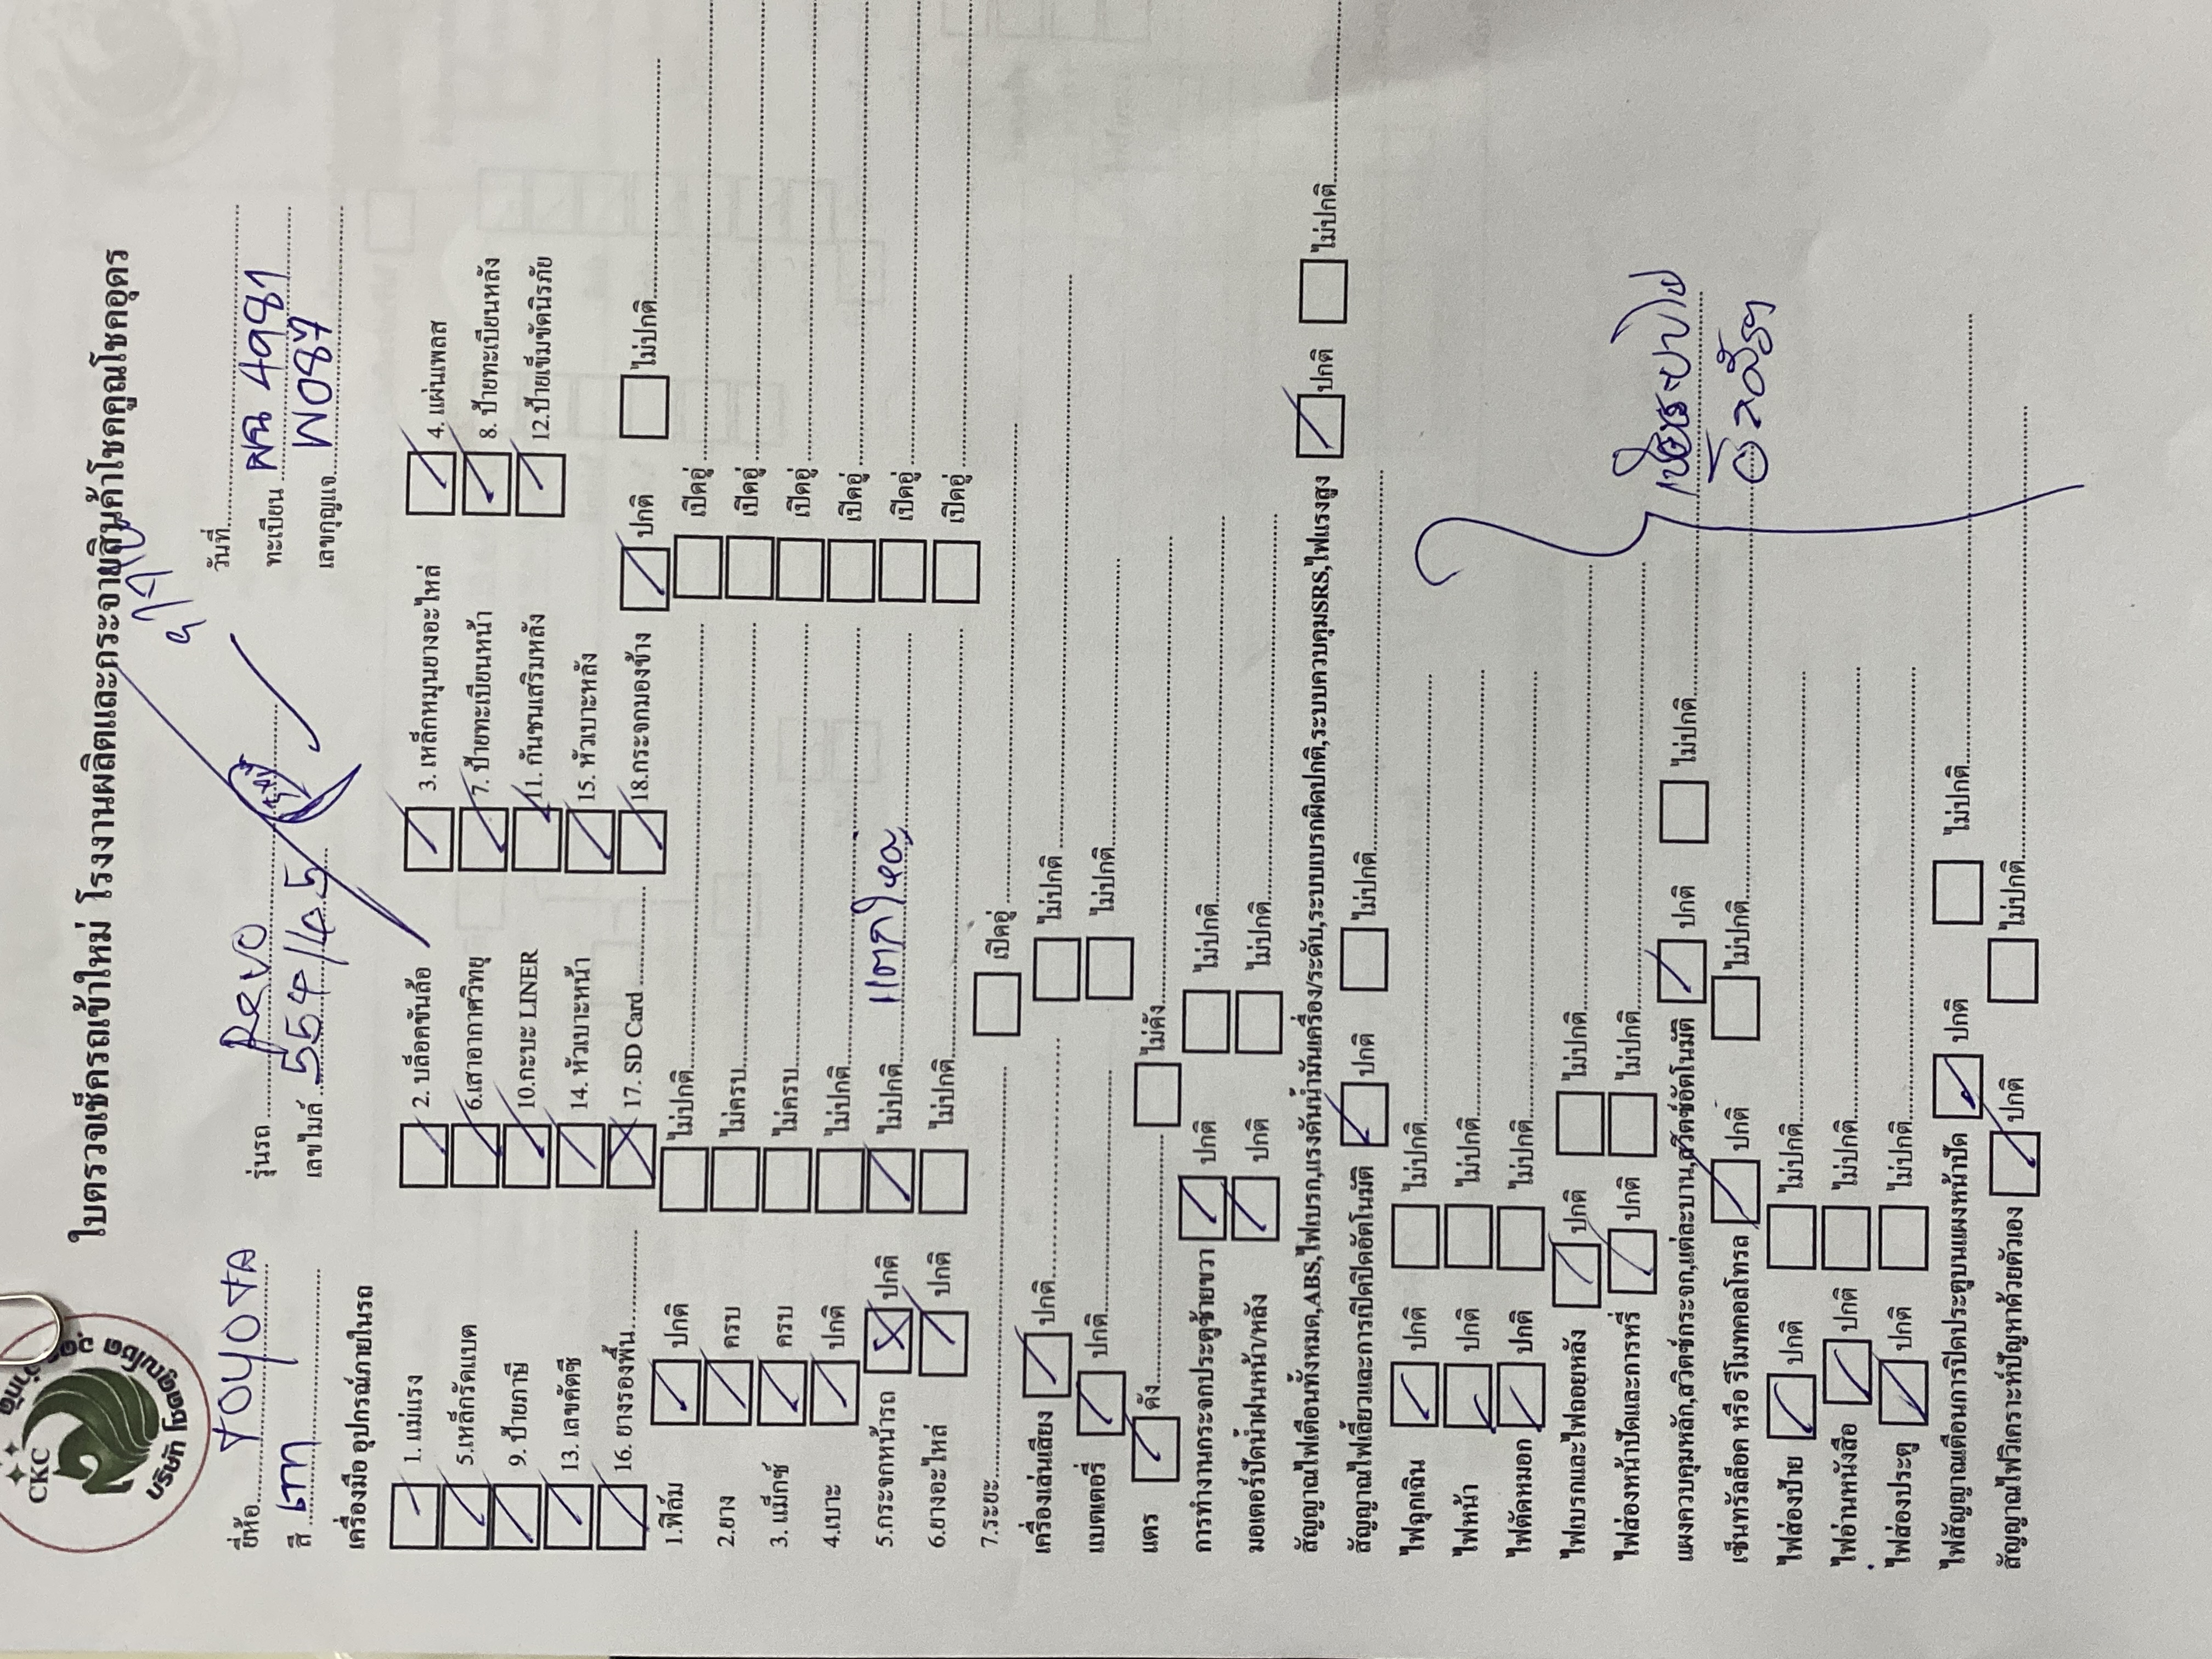 CKC
ใบตรวจเช็ครถเข้าใหม่ โรงงานผลิตและกระจายสินค้าโชคคูณโชคอุดร
ยี่ห้อ TOYOTA รุ่นรถ Revo วันที่
สี เทา เลขไมล์ 554145 ทะเบียน ผฉ 4981
เลขกุญแจ W087
เครื่องมือ อุปกรณ์ภายในรถ
1. แม่แรง 2. บล็อคขันล้อ 3. เหล็กหมุนยางอะไหล่ 4. แผ่นเพลส
5.เหล็กรัดแบต 6.เสาอากาศวิทยุ 7. ป้ายทะเบียนหน้า 8. ป้ายทะเบียนหลัง
9. ป้ายภาษี 10.กะบะ LINER 11. กันชนเสริมหลัง 12.ป้ายเข็มขัดนิรภัย
13. เลขคัตซี 14. หัวเบาะหน้า 15. หัวเบาะหลัง
16. ยางรองพื้น 17. SD Card 18.กระจกมองข้าง ปกติ ไม่ปกติ
1.ฟิล์ม ปกติ ไม่ปกติ เปิดอู่
2.ยาง ครบ ไม่ครบ เปิดอู่
3. แม็กซ์ ครบ ไม่ครบ เปิดอู่
4.เบาะ ปกติ ไม่ปกติ เปิดอู่
5.กระจกหน้ารถ ปกติ ไม่ปกติ แตก เปิดอู่
6.ยางอะไหล่ ปกติ ไม่ปกติ เปิดอู่
7.ระยะ เปิดอู่
เครื่องเล่นเสียง ปกติ ไม่ปกติ
แบตเตอรี่ ปกติ ไม่ปกติ
แตร ดัง ไม่ดัง
การทำงานกระจกประตูซ้ายขวา ปกติ ไม่ปกติ
มอเตอร์ปัดน้ำฝนหน้า/หลัง ปกติ ไม่ปกติ
สัญญาณไฟเตือนทั้งหมด,ABS,ไฟเบรก,แรงดันน้ำมันเครื่อง/ระดับ,ระบบเบรกผิดปกติ,ระบบควบคุมSRS,ไฟแรงสูง ปกติ ไม่ปกติ
สัญญาณไฟเลี้ยวและการเปิดปิดอัตโนมัติ ปกติ ไม่ปกติ
ไฟฉุกเฉิน ปกติ ไม่ปกติ
ไฟหน้า ปกติ ไม่ปกติ
ไฟตัดหมอก ปกติ ไม่ปกติ
ไฟเบรกและไฟถอยหลัง ปกติ ไม่ปกติ
ไฟส่องหน้าปัดและการหรี่ ปกติ ไม่ปกติ
แผงควบคุมหลัก,สวิตซ์กระจก,แต่ละบาน,สวิตซ์อัตโนมัติ ปกติ ไม่ปกติ
เซ็นทรัลล็อค หรือ รีโมทคอลโทรล ปกติ ไม่ปกติ
ไฟส่องป้าย ปกติ ไม่ปกติ
ไฟอ่านหนังสือ ปกติ ไม่ปกติ
ไฟส่องประตู ปกติ ไม่ปกติ
ไฟสัญญาณเตือนการปิดประตูบนแผงหน้าปัด ปกติ ไม่ปกติ
สัญญาณไฟวิเคราะห์ปัญหาด้วยตัวเอง ปกติ ไม่ปกติ